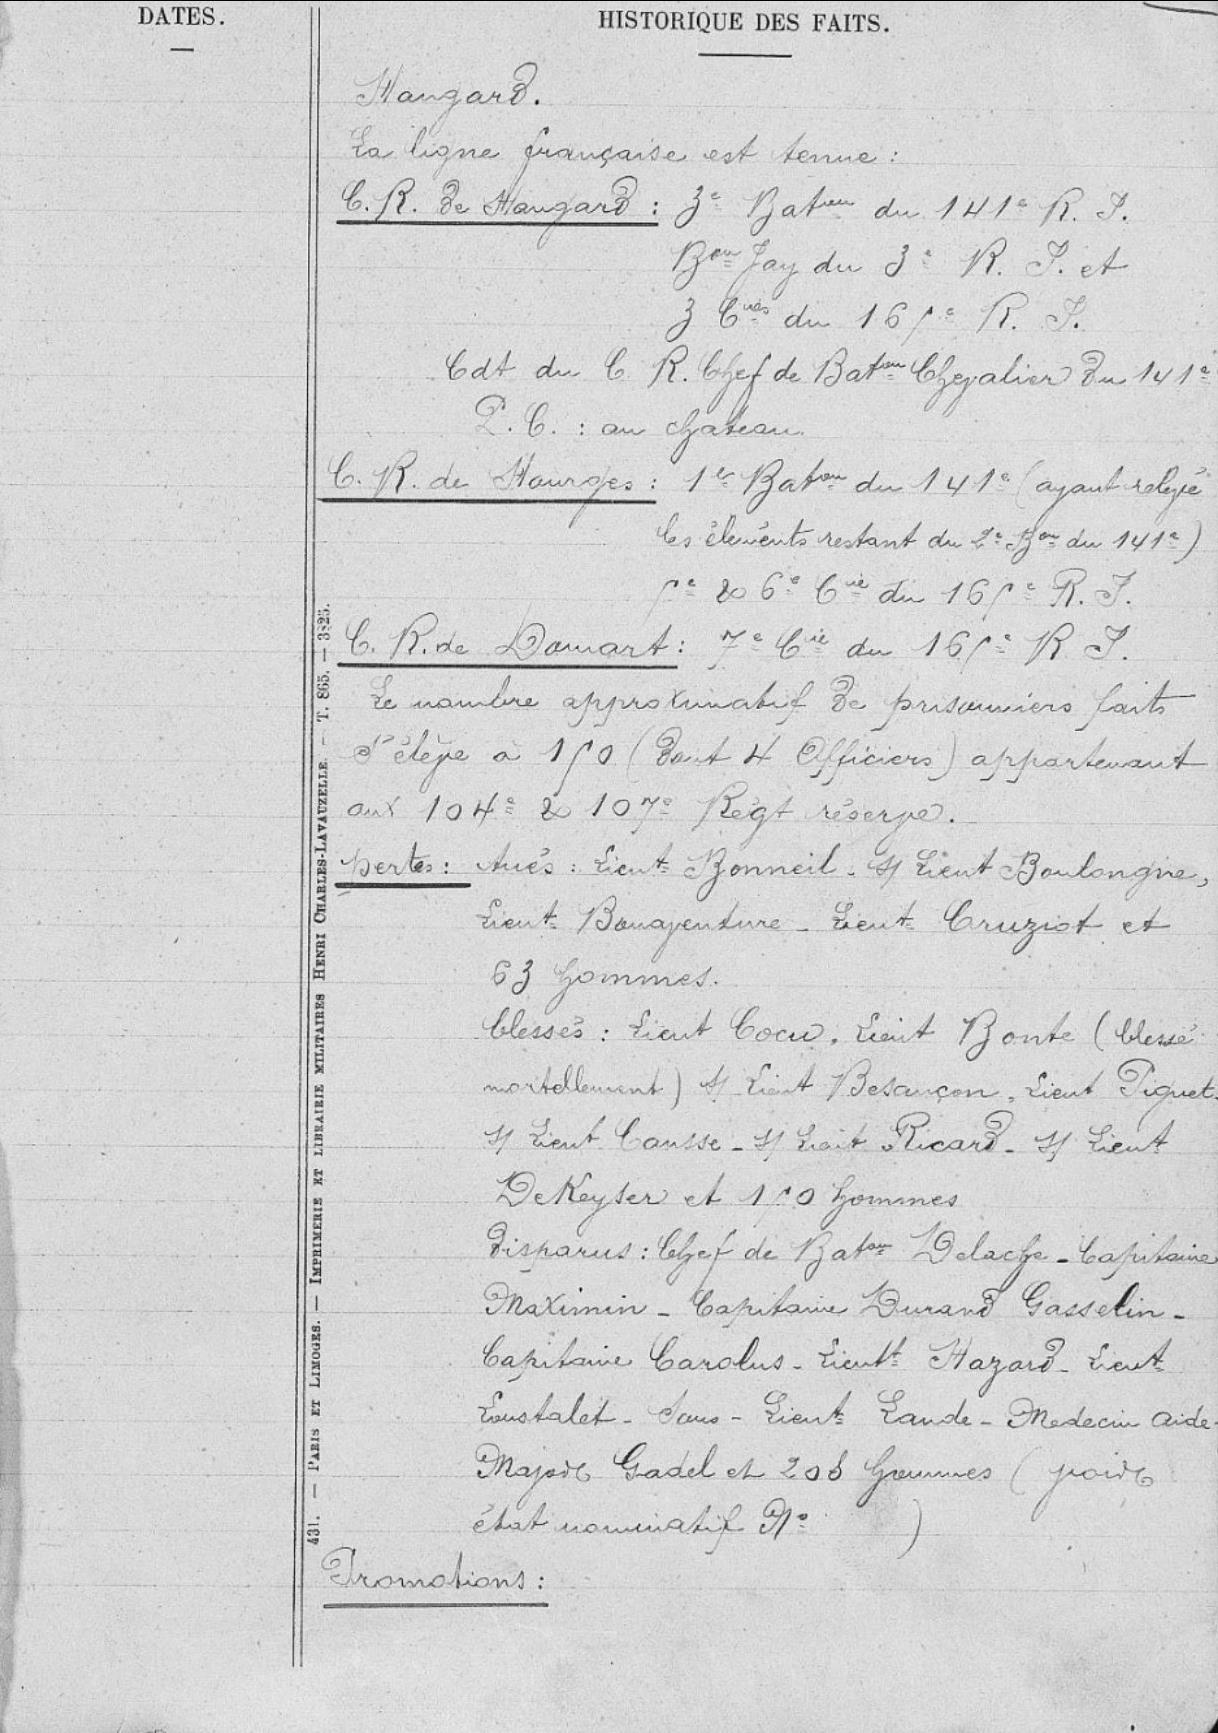 DATES.
HISTORIQUE DES FAITS.
Hangard.
La ligne française est tenue :
C. R. de Hangard : 3e Bataon du 141e R. I.
Bon Jay du 3e R. I. et
3 Cies du 165e R. I.
Cdt du C. R. Chef de Baton Chevalier du 141e
P. C. : au chateau
C. R. de Hourges : 1er Baton du 141e (ayant relevé
les éléments restant du 2e Bon du 141e)
5e & 6e Cie du 165e R. I.
C. R. de Domart : 7e Cie du 165e R. I.
Le nombre approximatif de prisonniers faits
s'élève à 150 (dont 4 Officiers) appartenant
aux 104e & 107e Régt réserve.
Pertes : tués : Lieut Bonneil - S/ Lieut Boulongne,
Lieut Bonaventure - Lieut Cruziot et
63 hommes.
blessés : Lieut Cocu, Lieut Bonte (blessé
mortellement) S/ Lieut Besançon, Lieut Piquet.
S/ Lieut Causse - S/ Lieut Ricard - S/ Lieut
DeKeyser et 150 hommes
Disparus : Chef de Baton Delache - Capitaine
Maximin - Capitaine Durand Gasselin -
Capitaine Carolus - Lieutt Hazard - Lieut
Loustalet - Sous - Lieut Lande - Medecin aide-
Major Gadel et 208 hommes (voir
état nominatif No )
Promotions :
431. — PARIS ET LIMOGES. — IMPRIMERIE ET LIBRAIRIE MILITAIRES HENRI CHARLES-LAVAUZELLE. — T. 865. — 3-25.